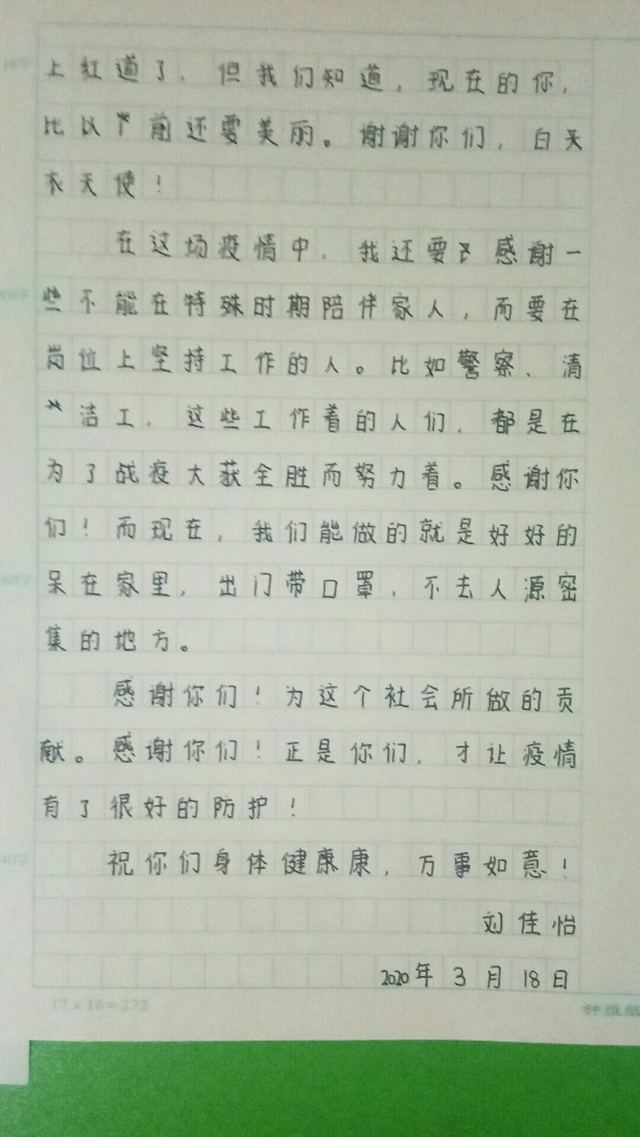 上红道了，但我们知道，现在的你，
比以前还要美丽。谢谢你们，白天
衣天使！
在这场疫情中，我还要感谢一
些不能在特殊时期陪伴家人，而要在
岗位上坚持工作的人。比如警察、清
洁工，这些工作着的人们，都是在
为了战疫大获全胜而努力着。感谢你
们！而现在，我们能做的就是好好的
呆在家里，出门带口罩，不去人源密
集的地方。
感谢你们！为这个社会所做的贡
献。感谢你们！正是你们，才让疫情
有了很好的防护！
祝你们身体健康康，万事如意！
刘佳怡
2020年3月18日
17×16=272